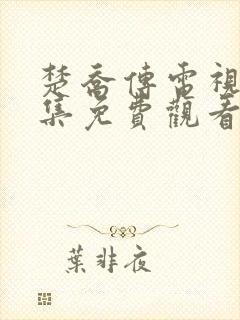 楚喬傳電視
集免費觀看
葉非夜